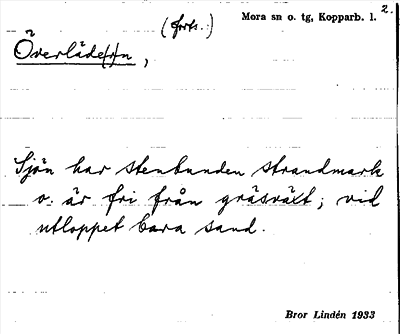 2.
(forts.)
Mora sn o. tg, Kopparb. l.
Överläde(r)n,
Sjön har stenbunden strandmark
o. är fri från gräsväxt; vid
utloppet bara sand.
Bror Lindén 1933